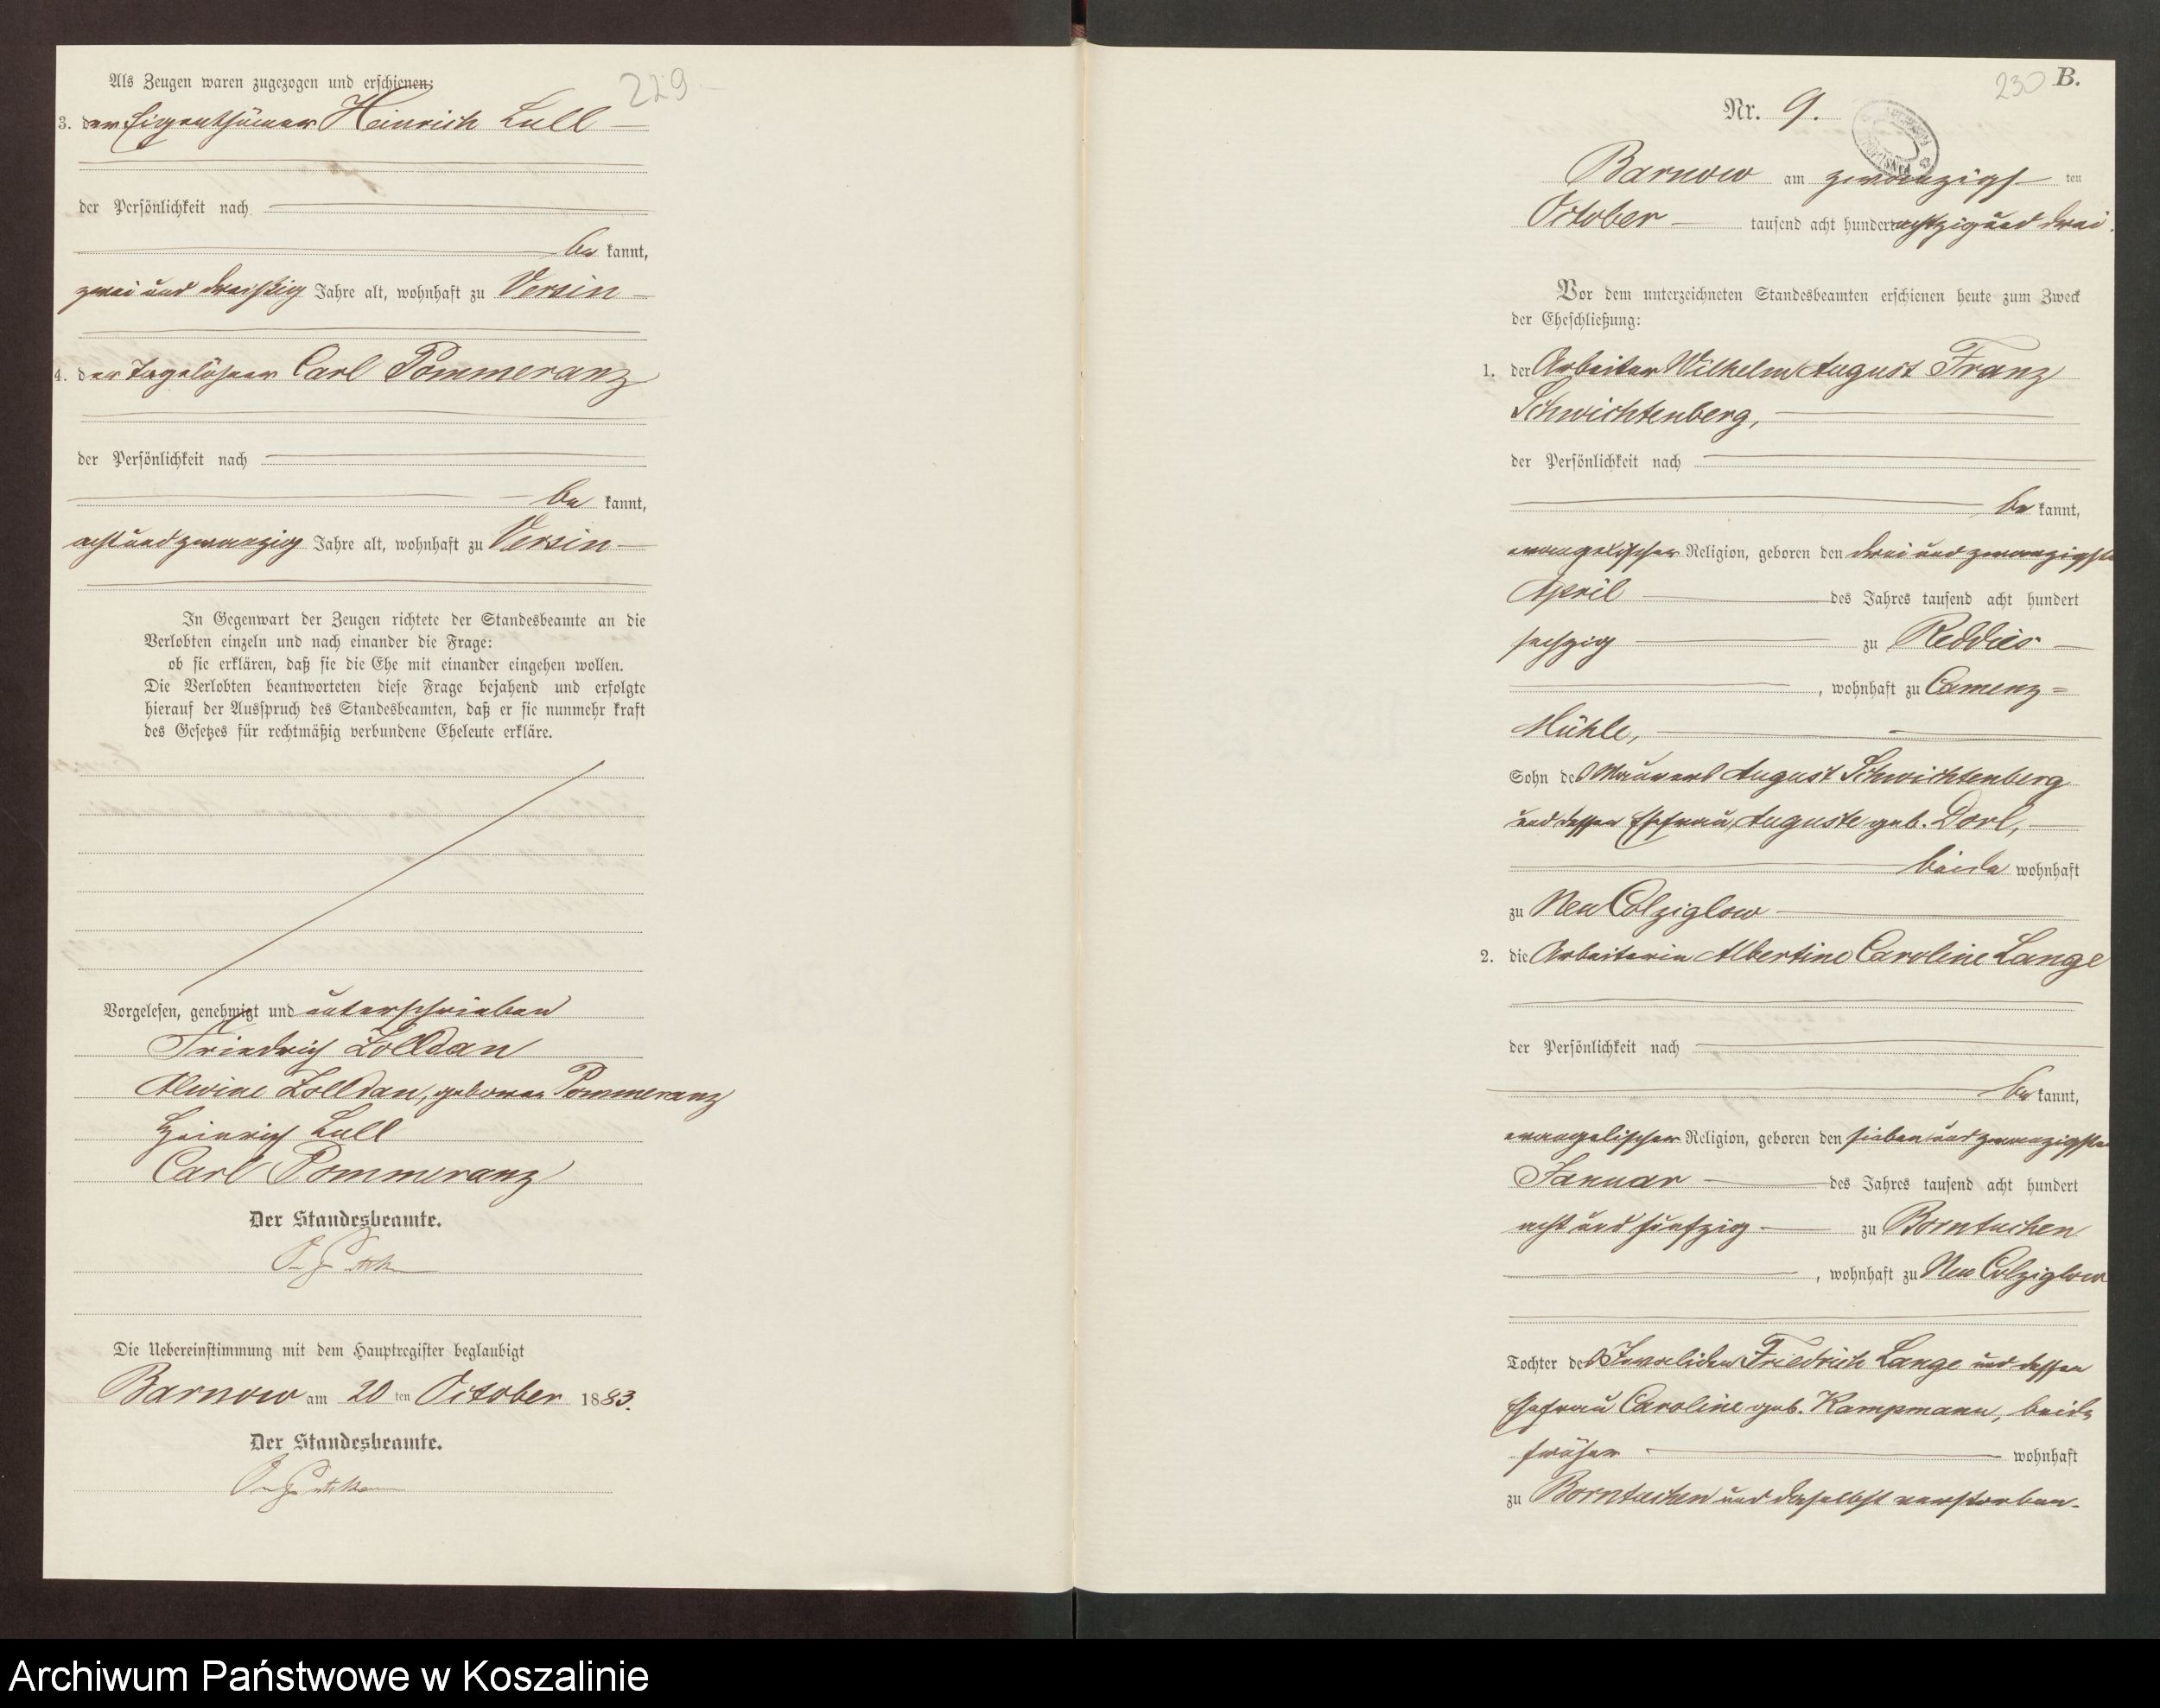 Als Zeugen waren zugezogen und erschienen:
229
3. der Eigenthümer Heinrich Lüll
der Persönlichkeit nach
be kannt,
zwei und dreißig Jahre alt, wohnhaft zu Versin
4. der Tagelöhner Carl Pommeranz
der Persönlichkeit nach
be kannt,
acht und zwanzig Jahre alt, wohnhaft zu Versin
In Gegenwart der Zeugen richtete der Standesbeamte an die
Verlobten einzeln und nach einander die Frage:
ob sie erklären, daß sie die Ehe mit einander eingehen wollen.
Die Verlobten beantworteten diese Frage bejahend und erfolgte
hierauf der Ausspruch des Standesbeamten, daß er sie nunmehr kraft
des Gesetzes für rechtmäßig verbundene Eheleute erkläre.
Vorgelesen, genehmigt und unterschrieben
Friedrich Zolldan
Alwine Zolldan, geboren Pommeranz
Heinrich Lüll
Carl Pommeranz
Der Standesbeamte.
Die Uebereinstimmung mit dem Hauptregister beglaubigt
Barnow am 20 ten October 1883.
Der Standesbeamte.
230 B.
Nr. 9.
Barnow am zwanzigs ten
October tausend acht hundert achtzig und drei.
Vor dem unterzeichneten Standesbeamten erschienen heute zum Zweck
der Eheschließung:
1. der Arbeiter Wilhelm August Franz
Schwichtenberg,
der Persönlichkeit nach
be kannt,
evangelischer Religion, geboren den drei und zwanzigsten
April des Jahres tausend acht hundert
sechzig zu Reddies
, wohnhaft zu Camenz=
Mühle,
Sohn des Maurers August Schwichtenberg
und dessen Ehefrau, Auguste geb. Dorl,
beide wohnhaft
zu Neu Colziglow
2. die Arbeiterin Albertine Caroline Lange
der Persönlichkeit nach
be kannt,
evangelischer Religion, geboren den sieben und zwanzigsten
Januar des Jahres tausend acht hundert
acht und fünfzig zu Borntuchen
, wohnhaft zu Neu Colziglow
Tochter des Invaliden Friedrich Lange und dessen
Ehefrau Caroline geb. Kampmann, beide
früher wohnhaft
zu Borntuchen und daselbst verstorben.
Archiwum Państwowe w Koszalinie